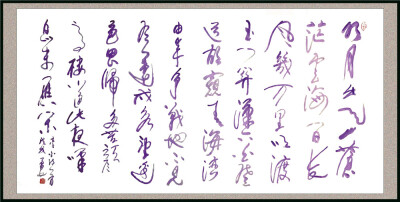 明月出天山蒼
茫雲海間長
風幾万里吹渡
玉门关漢下白登
道胡窺青海灣
由来征战地不見
有人還戍客望邊
邑思歸多苦顔
高樓當此夜嘆
息未應閑